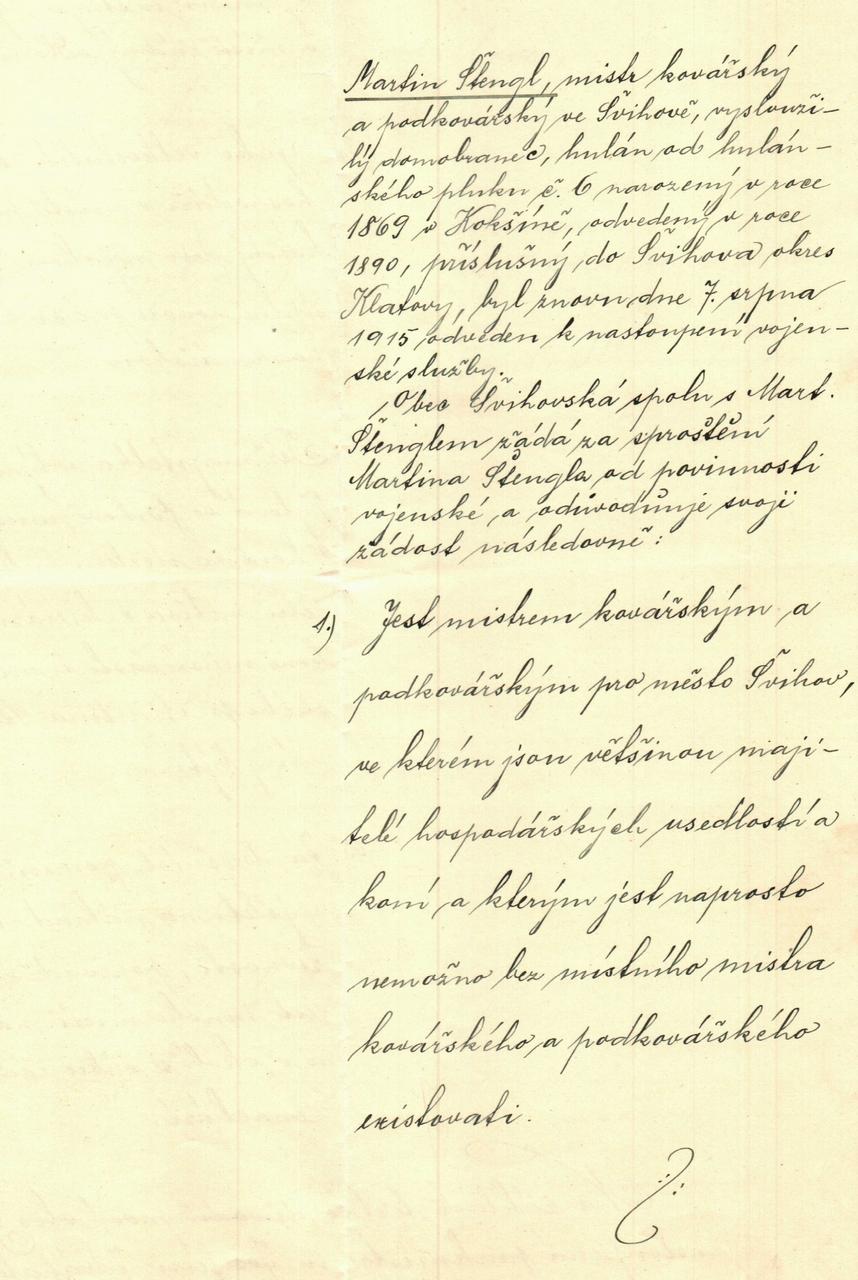 Martin Štengl, mistr kovářský
a podkovářský ve Švihově, vyslouži-
lý domobranec, hulán od hulán-
ského pluku č. 6 narozený v roce
1869 v Kokšíně, odvedený v roce
1890, příslušný do Švihova okres
Klatovy, byl znovu dne 7. srpna
1915 odveden k nastoupení vojen-
ské služby.
Obec Švihovská spolu s Mart.
Štenglem žádá za sproštění
Martina Štengla od povinnosti
vojenské a odůvodňuje svoji
žádost následovně:
1.) Jest mistrem kovářským a
podkovářským pro město Švihov,
ve kterém jsou většinou maji-
telé hospodářských usedlostí a
koní a kterým jest naprosto
nemožno bez místního mistra
kovářského a podkovářského
existovati.